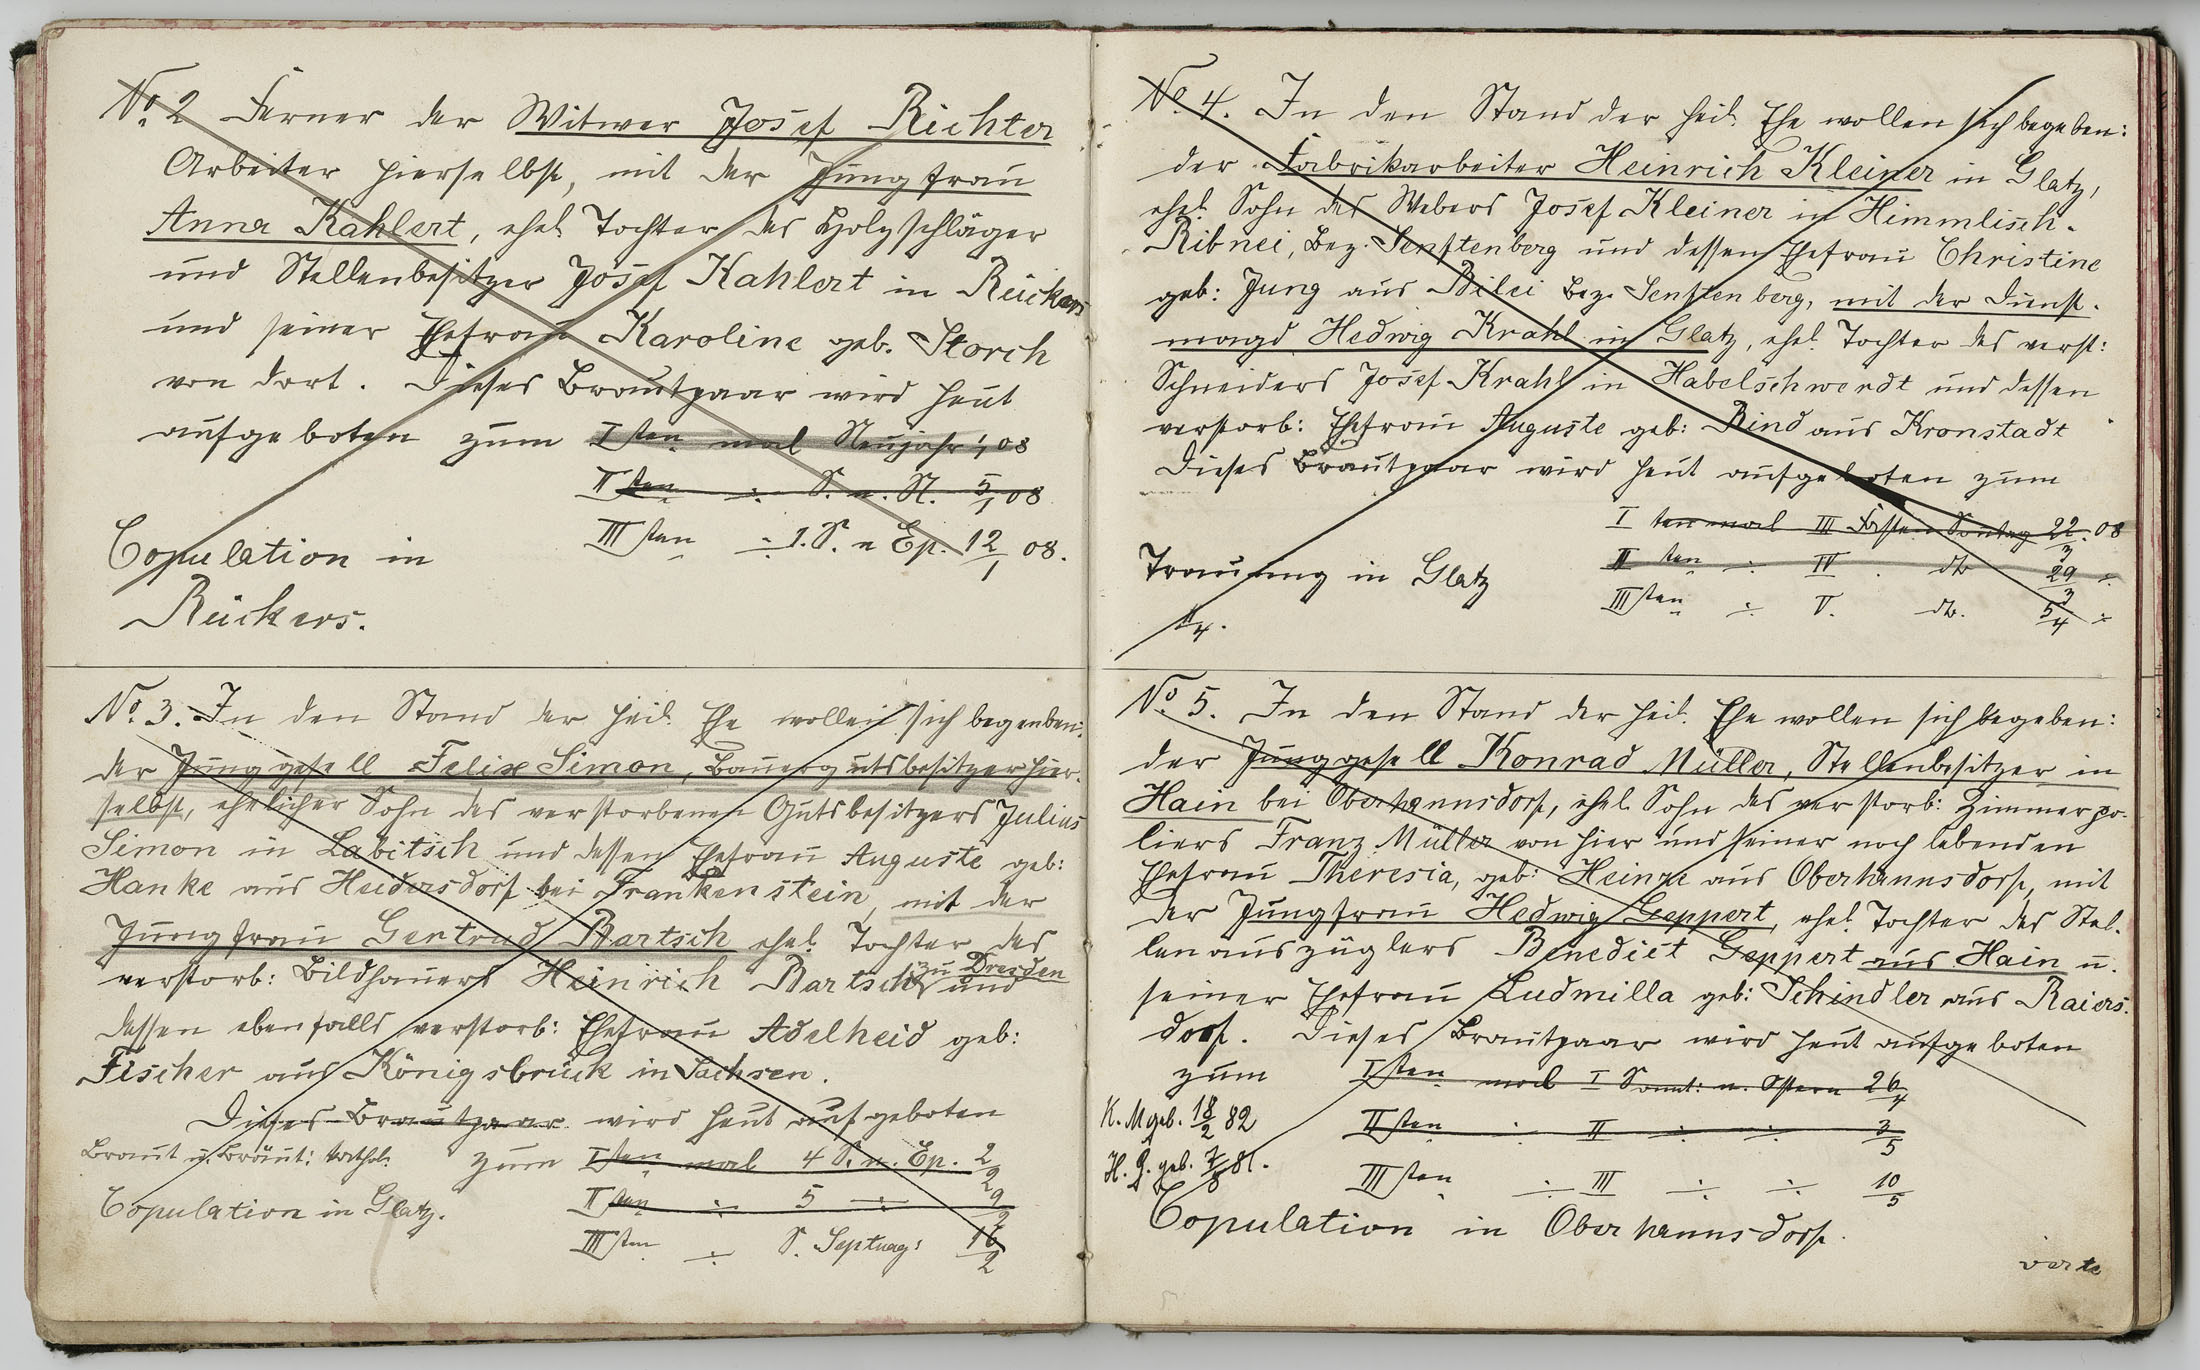 No. 2 Ferner der Witwer Josef Richter
Arbeiter hierselbst, mit der Jungfrau
Anna Kahlert, ehel. Tochter des Holzschläger
und Stellenbesitzer Josef Kahlert in Rückers
und seiner Ehefrau Karoline geb. Storch
von dort. Dieses Brautpaar wird heut
aufgeboten zum Isten mal Neujahr 1/1 08
IIsten ÷ S. n. N. 5/1 08
IIIsten ÷ 1. S. n Ep. 12/1 08.
Copulation in
Rückers.
No. 3. In den Stand der heil. Ehe wollen sich begenben:
der Junggesell Felix Simon, Bauergutsbesitzer hier-
selbst, ehelicher Sohn des verstorbenen Gutsbesitzers Julius
Simon in Labitsch und dessen Ehefrau Auguste geb:
Hanke aus Heidersdorf bei Frankenstein, mit der
Jungfrau Gertrud Bartsch ehel. Tochter des
verstorb: Bildhauers Heinrich Bartsch zu Dresden und
dessen ebenfalls verstorb: Ehefrau Adelheid geb:
Fischer aus Königsbrück in Sachsen.
Dieses Brautpaar wird heut aufgeboten
Braut u. Bräut: kathol. zum Isten mal 4 S. n. Ep. 2/2
IIsten ÷ 5 ÷ 9/2
Copulation in Glatz.
IIIsten ÷ S. Septuag: 16/2
No. 4. In den Stand der heil. Ehe wollen sich begeben:
der Fabrikarbeiter Heinrich Kleiner in Glatz,
ehel. Sohn des Webers Josef Kleiner in Himmlisch-
Ribnei, Bez. Senftenberg und dessen Ehefrau Christine
geb: Jung aus Bilei Bez. Senftenberg, mit der Dienst-
magd Hedwig Krahl in Glatz, ehel. Tochter des verst:
Schneiders Josef Krahl in Habelschwerdt und dessen
verstorb: Ehefrau Auguste geb: Rind aus Kronstadt
Dieses Brautpaar wird heut aufgeboten zum
I ten mal III Fasten Sontag 22/3 08
II ten ÷ IV. do 29/3 ÷
Trauung in Glatz
IIIsten ÷ V. do. 5/4 ÷
No. 5. In den Stand der heil. Ehe wollen sich begeben:
der Junggesell Konrad Müller, Stellenbesitzer in
Hain bei Oberhannsdorf, ehel. Sohn des verstorb: Zimmerpo-
liers Franz Müller von hier und seiner noch lebenden
Ehefrau Theresia, geb: Heinze aus Oberhannsdorf, mit
der Jungfrau Hedwig Geppert, ehel. Tochter des Stel-
lenauszüglers Benedict Geppert aus Hain u.
seiner Ehefrau Ludmilla geb: Schindler aus Raiers-
dorf. Dieses Brautpaar wird heut aufgeboten
zum Isten mal I Sonnt: n. Ostern 26/4
K. M geb. 18/2 82
IIsten ÷ II ÷ ÷ 3/5
H. G. geb. 7/8 81.
IIIsten ÷ III ÷ ÷ 10/5
Copulation in Oberhannsdorf.
verte